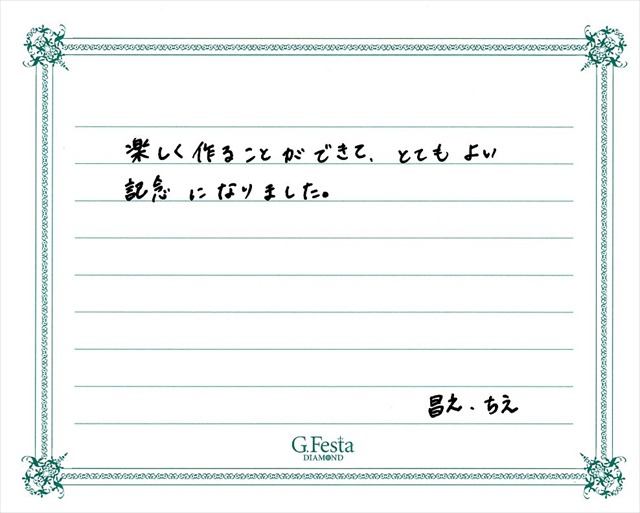 楽しく作ることができて、とてもよい
記念になりました。
昌え・ちえ
G.Festa
DIAMOND